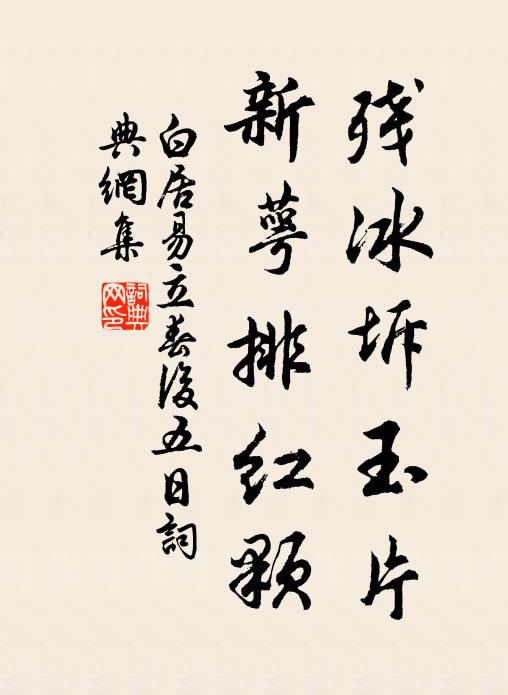 残冰坼玉片
新萼排红颗
白居易立春後五日詞
典網集
詞典网印